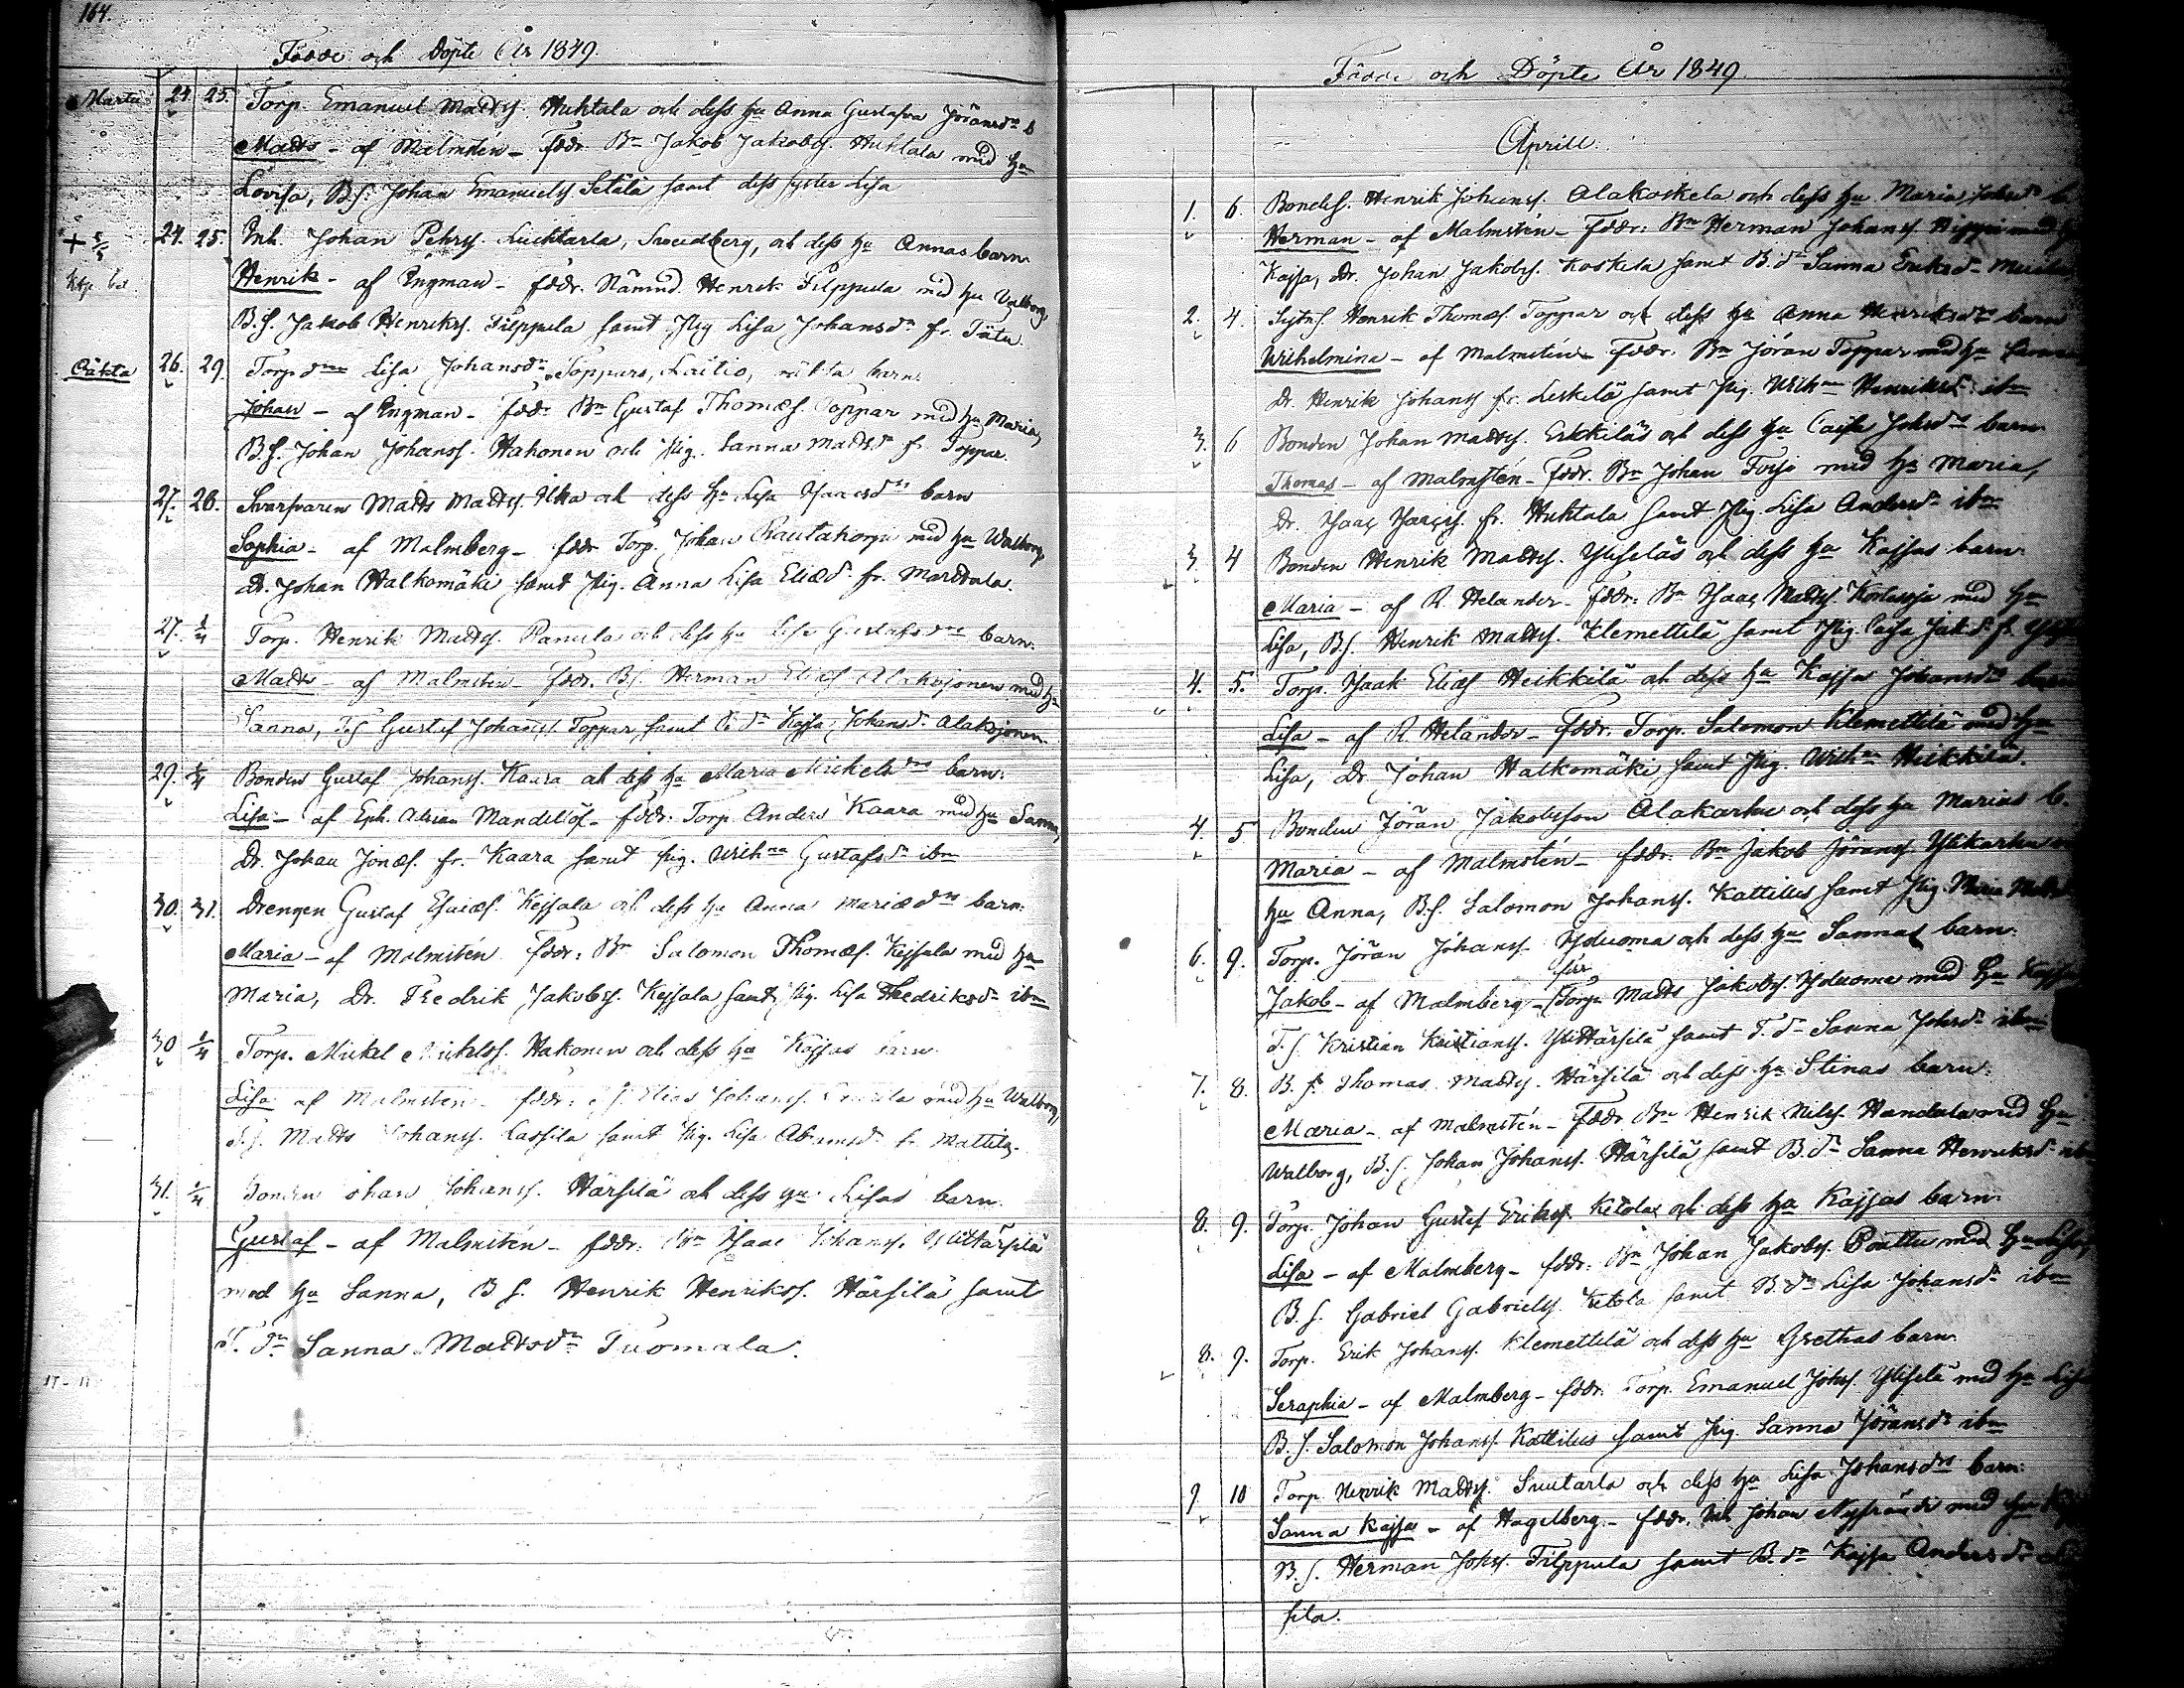 164.
Födde och Döpte År 1849.
Martii 24. 25. Torp. Emanuel Matts. Huhtala och dess hu Anna Gustafva Jöransdr b
Matts - af Malmstén - Fddr. Bn Jakob Jakobs. Huhtala med hu
Lovisa, B.S. Johan Emanuels. Setälä samt dess syster Lisa
24. 25. Inh. Johan Pehrs. Luchtarla, Svedberg, och dess hu Annas barn
Henrik - af Engman - fddr. Nämnd. Henrik Filppula med hu Valborg,
B.S. Jakob Henriks. Filppula samt Pig. Lisa Johansdr fr.
Oäkta 26. 29. Torp.dren Lisa Johansdr Toppars, Laitio, oäkta barn.
Johan - af Engman - fddr. Bn Gustaf Thomæs. Toppar med hu Maria,
B.S. Johan Johans. Hakonen och Pig. Sanna Mattsdr fr. Toppar.
27. 28. Svarfvaren Matts Matts. Ilka och dess hu Lisa Isaacsdrs barn
Sophia - af Malmberg - fddr. Torp. Johan Rautakorpi med hu Walborg,
Dr. Johan Halkomäki samt Pig. Anna Lisa Eliædr fr. Marttala.
27. 1/4 Torp. Henrik Matts. Panula och dess hu Lisa Gustafsdrs barn.
Matts - af Malmstén - fddr. B.S. Herman Eliæs. Alaksjonen med hu
Sanna, T.S. Gustaf Johans. Toppar samt B.dr Kajsa Johansdr Alaksjonen.
29. 1/4 Bonden Gustaf Johans. Kaara och dess hu Maria Mickelsdrs barn.
Lisa - af Eph. Adrian Mandellöf - fddr: Torp. Anders Kaara med hu Sanna,
Dr. Johan Jonæs. fr. Kaara samt Pig. Wilhna Gustafsdr ibm
30. 31. Drengen Gustaf Esaiæs. Kejsala och dess hu Anna Mariædrs barn.
Maria - af Malmstén fddr: Bn Salomon Thomæs. Kejsala med hu
Maria, Dr. Fredrik Jakobs. Kejsala samt Pig. Lisa Fredriksdr ibm
30 1/4 Torp. Mickel Mickels. Hakonen och dess hu Kajsas barn.
Lisa af Malmsten - fddr: Elias Johans. med hu Walborg,
T.S. Matts Johans. Lassila samt Pig. Lisa Abramsdr fr Mattila.
31. 1/4 Bonden Johan Johans. Härsilä och dess hu Lisas barn.
Gustaf - af Malmstén - fddr: Bn Isaac Johans. Ylittärsilä
med hu Sanna, B.S. Henrik Henriks. Härsilä samt
T.dr Sanna Mattsdr Tuomala.
Födde och Döpte År 1849.
Aprill.
1. 6. Bondes. Henrik Johans. Alakoskela och dess hu Maria Johsdr b.
Herman - af Malmstén - Fddr: Bn Herman Johans. Hippi med hu
Kajsa, Dr. Johan Jakobs. Koskela samt B.dr Sanna Eriksdr
2. 4. Sytns. Henrik Thomæs. Toppar och dess hu Anna Henriksdrs barn
Wilhelmina - af Malmstén - Fddr. Bn Jöran Toppar med hu
Dr. Henrik Johans. fr. Leskelä samt Pig. Wilhna Henriksdr ibm
3. 6 Bonden Johan Matts. Erkkiläs och dess hu Caisa Johsdrs barn
Thomas - af Malmstén - Fddr. Bn Johan Forsjö med hu Maria,
Dr. Isaac Isaacs. fr. Huhtala samt Pig. Lisa Andersdr ibm
3. 4 Bonden Henrik Matts. Yliseläs och dess hu Kajsas barn
Maria - af R. Helander - Fddr: Bn Isaac Matts. med hu
Lisa, B.S. Henrik Matts. Klemettilä samt Pig. Caisa Jak.dr fr.
4. 5. Torp. Isaak Eliæs. Heikkilä och dess hu Kajsa Johansdrs barn
Lisa - af R. Helander - Fddr. Torp. Salomon Klemettilä med hu
Lisa, Dr. Johan Halkomäki samt Pig. Wilhna Heikkilä.
4. 5 Bonden Jöran Jakobsson Alakarhu och dess hu Marias b.
Maria - af Malmstén - fddr. Bn Jakob Jörans. Ylikarhu
hu Anna, B.S. Salomon Johans. Kattilus samt Pig. Maria
6. 9. Torp. Jöran Johans. Ysoluoma och dess hu Sannas barn.
Jakob - af Malmberg - Torp. Matts Jakobs. Ysoluoma med hu Kajsa
T.S. Kristian Kristians. Ylittärsilä samt T.dr Sanna Johsdr ibm
7. 8. B.S. Thomas Matts. Härsilä och dess hu Stinas barn.
Maria - af Malmstén - Fddr Bn Henrik Nils. Handala med hu
Walborg, B.S. Johan Johans. Härsilä samt B.dr Sanna Henriksdr ibm
8. 9. Torp. Johan Gustaf Eriks. Ketola och dess hu Kajsas barn.
Lisa - af Malmberg - fddr: Bn Johan Jakobs. Pouttu med hu Lisa,
B.S. Gabriel Gabriels. Ketola samt B.dr Lisa Johansdr ibm
8. 9. Torp. Erik Johans. Klemettilä och dess hu Grethas barn.
Seraphia - af Malmberg - fddr. Torp. Emanuel Johs. Ylisilä med hu Lisa
B.S. Salomon Johans. Kattilus samt Pig. Sanna Jöransdr ibm
9. 10 Torp. Henrik Matts. Suutarla och dess hu Lisa Johansdrs barn.
Sanna Kajsa - af Hagelberg - fddr. Inh. Johan med hu
B.S. Herman Johs. Filppula samt B.dr Kajsa Andersdr
sila.